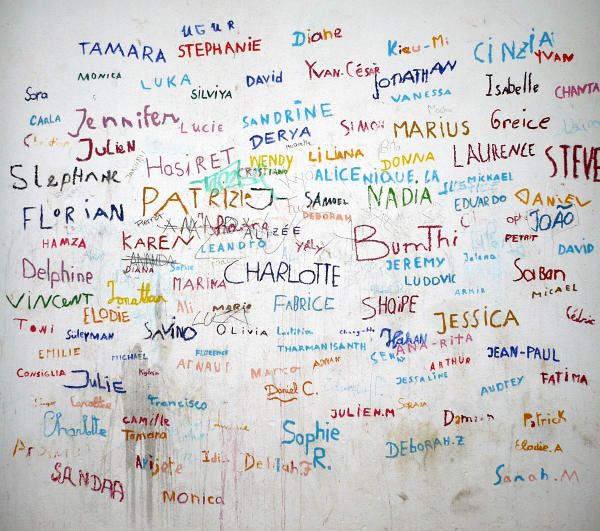 UGUR
Diane
TAMARA STEPHANIE
Kieu-Mi CINZIA
YVAN
MONICA LUKA SILVIYA DAVID YVAN-CÉSAR JONATHAN
VANESSA Isabelle CHANTA
Sora
CARLA Jennifer Lucie SANDRINE SIMON MARIUS Greice
DERYA
JULIEN HosiRET WENDY LILIANA DONNA LAURENCE STEVE
CRISTIANO
Slephane ALICE NIQUE.LA MICKAEL
PATRIZIA J- SAMUEL NADIA EDUARDO DANIEL
FLORIAN DEBORAH JOAO
HAMZA KAREN ALIZÉE BumThi PETRIT
LEANDRO Yelly DAVID
ANANDA
DIANA Sophie
Delphine MARINA CHARLOTTE JEREMY Jelena Saban
LUDOVIC ARMIR MICAEL
VINCENT Jonathan Ali MARIO FABRICE SHQIPE
ELODIE JESSICA Cédric
Toni SULEYMAN SAVINO OLIVIA Laetitia
THARMANISANTH HAKAN
ANA-RITA
EMILIE MICHAEL FLORENCE ARNAUT ADNAN ARTHUR JEAN-PAUL
CONSIGLIA JULIE MARCO JESSALINE AUDREY FATIMA
Daniel C.
Francisco SORAIA
Charlotte CAMILLE JULIEN.M Damian Patrick
Tamara Sophie R. DEBORAH.Z Elodie.A
Arijete Idi Delilah F.
SANDRA Monica Sanah.M